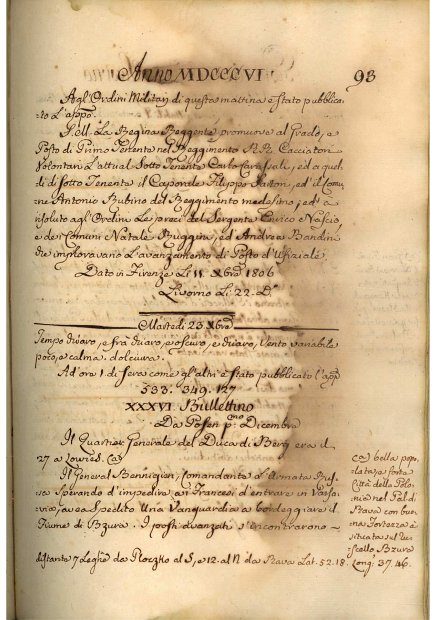 Anno MDCCCVI 93
Agl'Ordini Militari di questa mattina è stato pubblica-
to l'appo:
S. M. La Regina Reggente promuove al Grado, e
Posto di Primo Tenente nel Reggimento R. R. Cacciatori
Volontari l'attual Sotto Tenente Carlo , ed a quel-
li di Sotto Tenente il Caporale Filippo , ed il Comu-
ne Antonio Rubino del Reggimento medesimo; ed à
risoluto agl'Ordini le preci del Sergente Enrico
e dei Comuni Natale Ruggini, ed Andrea Bandini
che imploravano l'avanzamento di Posto d'Ufiziale.
Dato in Firenze Li 11. Xbre 1806
Livorno Li 22. Do
Martedi 23 Xbre
Tempo chiaro, e frà chiaro, e oscuro, e chiaro, vento variabile
poco, e calma.
Ad ora 1 di sera come gl'altri è stato pubblicato l'appo
333. 349. 127
XXXVI Bullettino
Da Posen pmo Dicembre
Il Quartier Generale del Duca di Berg era il
27 a Lowies. (a)
Il General Bennigsen, Comandante l'Armata Rus-
sa sperando d'impedire ai Francesi d'entrare in Varso-
via, avea spedito una Vanguardia a bordeggiare il
Fiume di Bzura. I posti avanzati s'incontrarono –
(a) bella popo-
lata, e forte
Città della Polo-
nia nel Pal. di
Rava con buo-
na Fortezza è
situata sul Ru-
scello Bzura
distante 7 Leghe da Ploczko al S, e 12. al N da Rava Lat. 52. 18. Long. 37. 46.